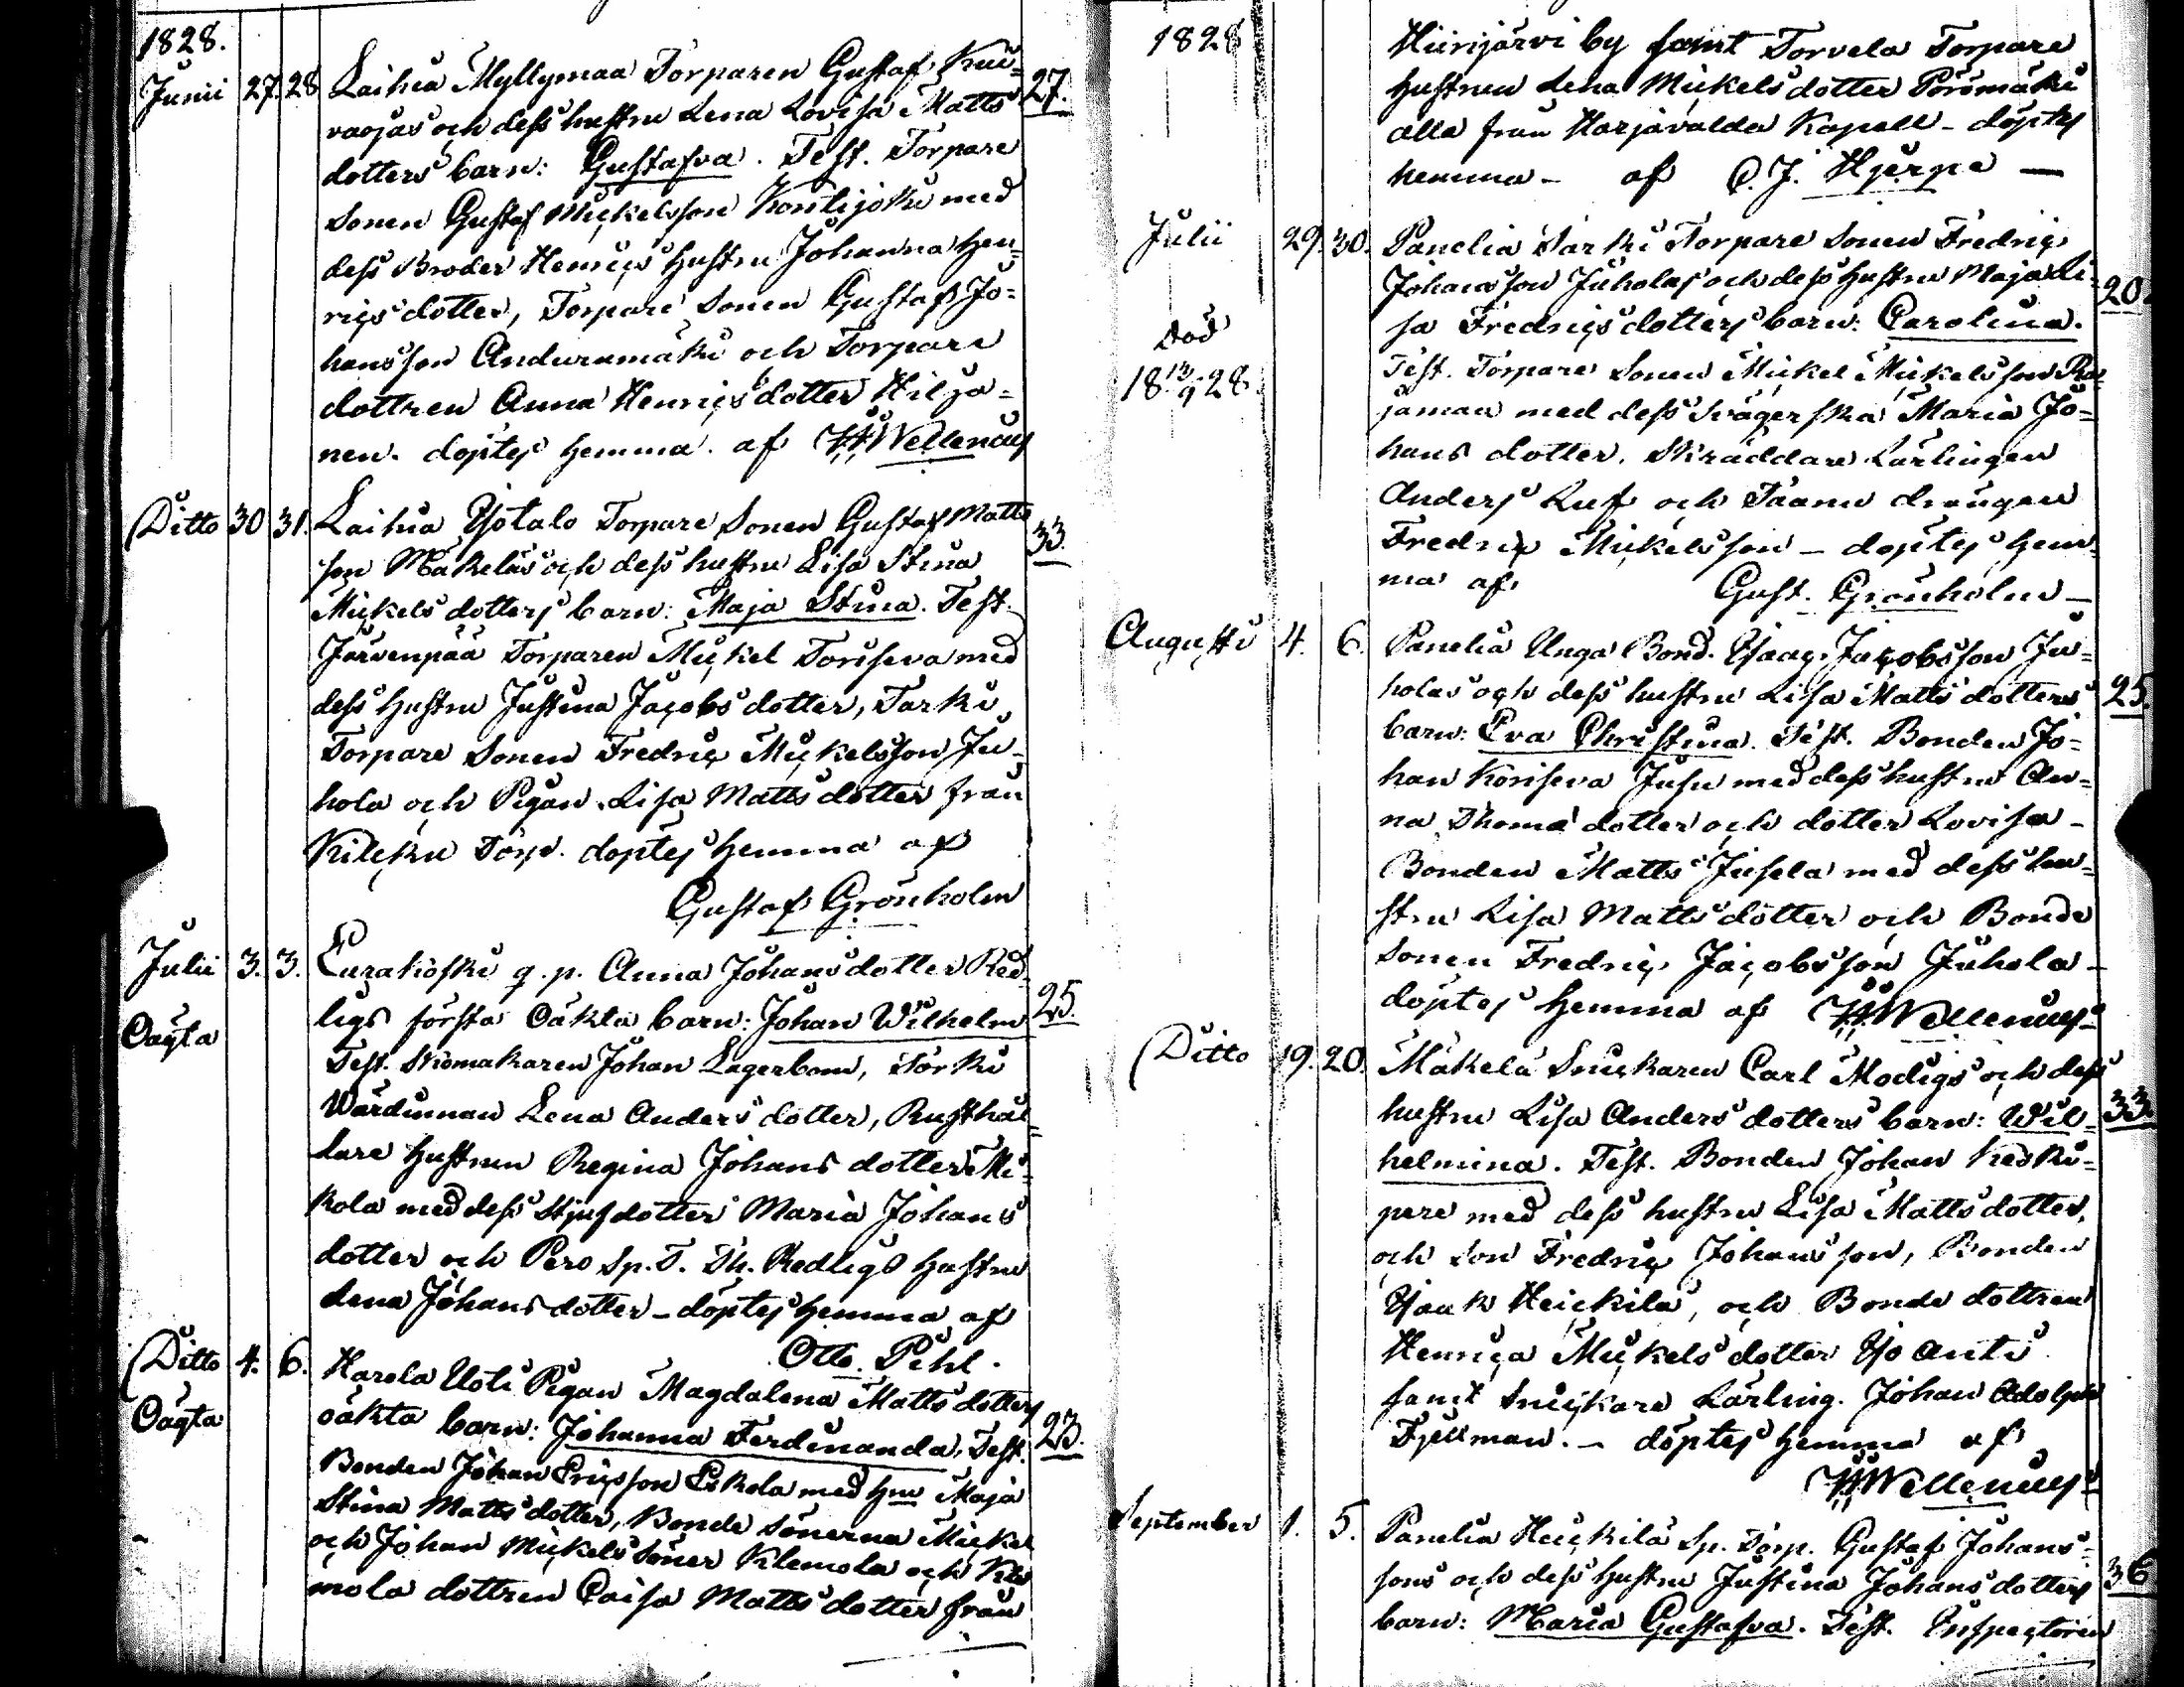 1828.
Junii 27. 28 Laihia Myllymaa Torparen Gustaf Kui=
vaojas och dess hustru Lena Lovisa Matts 27.
dotters barn: Gustafva. Test. Torpare
Sonen Gustaf Mickelsson Kontijoki med
dess Broder Henrics Hustru Johanna Hen=
rics dotter, Torpare Sonen Gustaf Jo=
hansson Anduramäki och Torpare
dottren Anna Henrics dotter Hilja=
nen. döptes hemma. af Wellenius
Ditto 30 31. Laihia Yötalo Torpare Sonen Gustaf Matts
son Mäkeläs och dess hustru Lisa Stina 33.
Mickels dotters barn: Maja Stina. Test.
Järvenpää Torparen Mickel Toriseva med
dess Hustru Justina Jacobs dotter, Tarki
Torpare Sonen Fredric Mickelsson Ju=
hola och Pigan Lisa Matts dotter från
Torp. döptes hemma af
Gustaf Grönholm
Julii 3. 3. Eurakoski q. p. Anna Johans dotter Red=
ligs första Oäkta barn: Johan Wilhelm 25.
Oägta
Test. Skomakaren Johan Lagerbom, Tarki
Wärdinnan Lena Anders dotter, Rusthål=
lare Hustrun Regina Johans dotter Mi=
kola med dess Stjufdotter Maria Johans
dotter och Pers Sp. T. Th. Redligs Hustru
Lena Johans dotter – döptes hemma af
Otto Pihl.
Ditto 4. 6. Harola Uoti Pigan Magdalena Matts dotters
Oägta
oäkta barn: Johanna Ferdinanda. Test. 23.
Bonden Johan Ericsson Eskola med hu Maja
Stina Matts dotter, Bonde Sönerna Mickel
och Johan Mickels Söner Klemola och Kle
mola dottren Caisa Matts dotter från
1828
Hiirijärvi by samt Torvela Torpare
hustrun Lena Mickels dotter Pörömäki
alla från Harjavalda Kapell – döptes
hemma – af C. J. Hjerpe –
Julii 29. 30. Panelia Tarki Torpare Sonen Fredric
Johansson Juholas och dess hustru Maja Li= 20.
sa Fredrics dotters barn: Carolina.
Död
18 13/9 28.
Test. Torpare Sonen Mickel Mickelsson
jaman med dess Svägerska Maria Jo=
hans dotter, Skräddare Lärlingen
Anders Luf och Taanu drängen
Fredric Mickelsson – döptes hem=
ma af Gust. Grönholm –
Augusti 4. 6. Panelia Unga Bond. Isaac Jacobsson Ju=
holas och dess hustru Lisa Matts dotters 25.
barn: Eva Christina. Test. Bonden Jo=
han Koriseva Jusu med dess hustru An=
na Thoma dotter och dotter Lovisa –
Bonden Matts Jusela med dess hu=
stru Lisa Matts dotter och Bonde
Sonen Fredric Jacobsson Juhola –
döptes hemma af Wellenius
Ditto 19. 20. Mäkelä Snickaren Carl Modigs och dess
hustru Lisa Anders dotters barn: Wil= 33.
helmina. Test. Bonden Johan Keski=
pere med dess hustru Lisa Matts dotter,
och Son Fredric Johansson, Bonden
Isaak Heickilä, och Bonde dottren
Henrica Mickels dotter Yo Anti
samt Snickare Lärling. Johan Adolph
Fjellman. – döptes hemma af
Wellenius
September 1. 5. Panelia Heickilä Sp. Torp. Gustaf Johans=
sons och dess hustru Justina Johans dotters 36
barn: Maria Gustafva. Test. Inspectoren